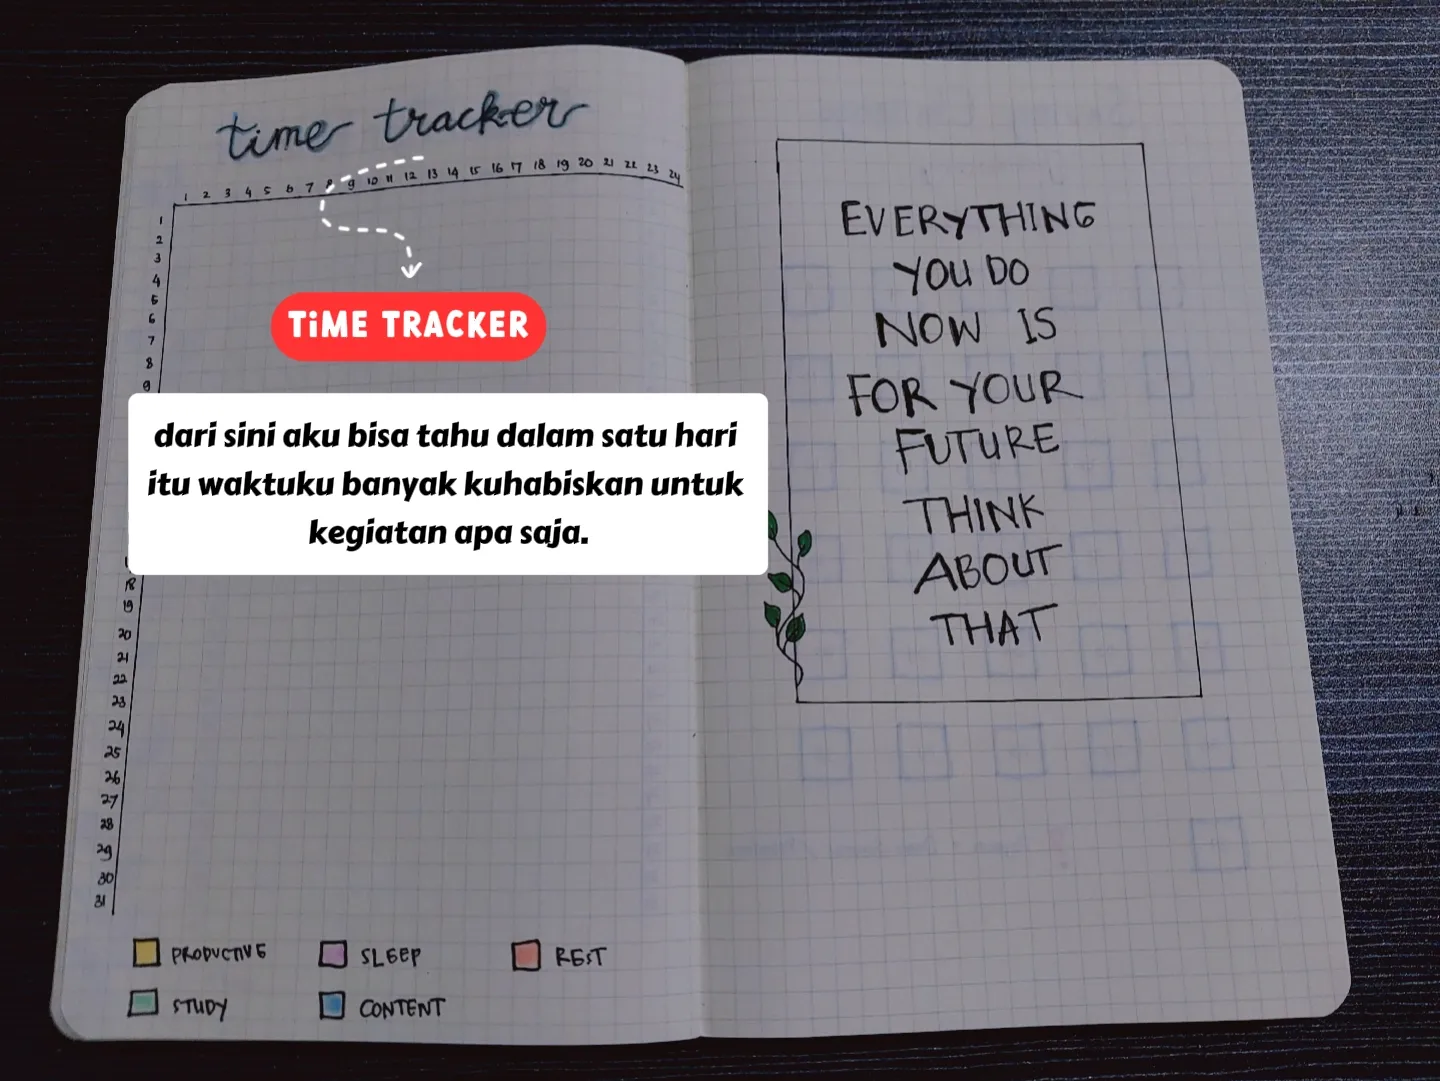 time tracker
1 2 3 4 5 6 7 8 9 10 11 12 13 14 15 16 17 18 19 20 21 22 23 24
1
2
3
4
5
6
7
8
9
TiME TRACKER
dari sini aku bisa tahu dalam satu hari
itu waktuku banyak kuhabiskan untuk
kegiatan apa saja.
18
19
20
21
22
23
24
25
26
27
28
29
30
31
PRODUCTIVE SLEEP REST
STUDY CONTENT
EVERYTHING
YOU DO
NOW IS
FOR YOUR
FUTURE
THINK
ABOUT
THAT